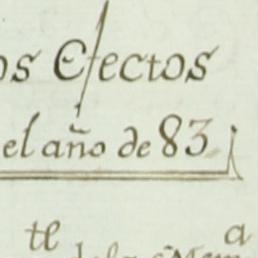 os Efectos
el año de 83
te a